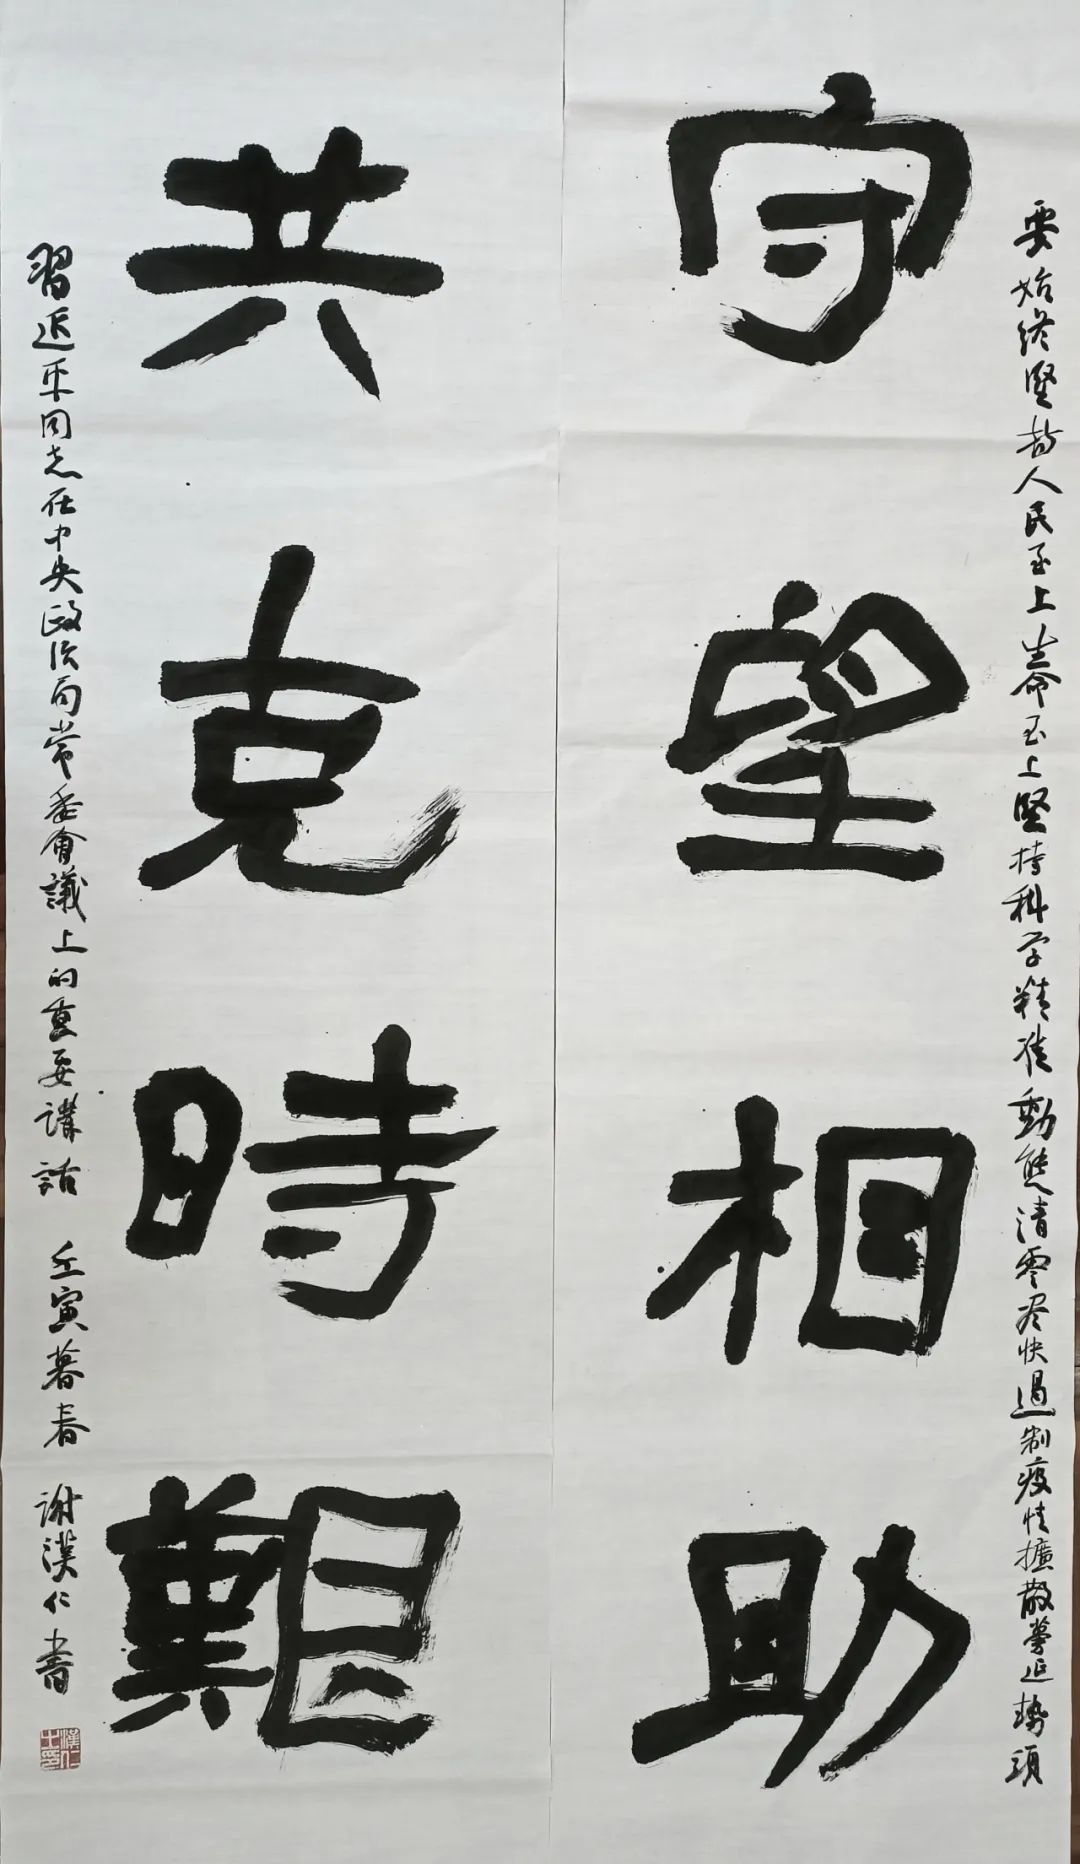 要始終堅持人民至上生命至上堅持科学精准動態清零尽快遏制疫情擴散蔓延勢頭
守望相助
共克時艱
習近平同志在中央政治局常委會議上的重要講話 壬寅暮春 謝漢仁書
漢仁之印